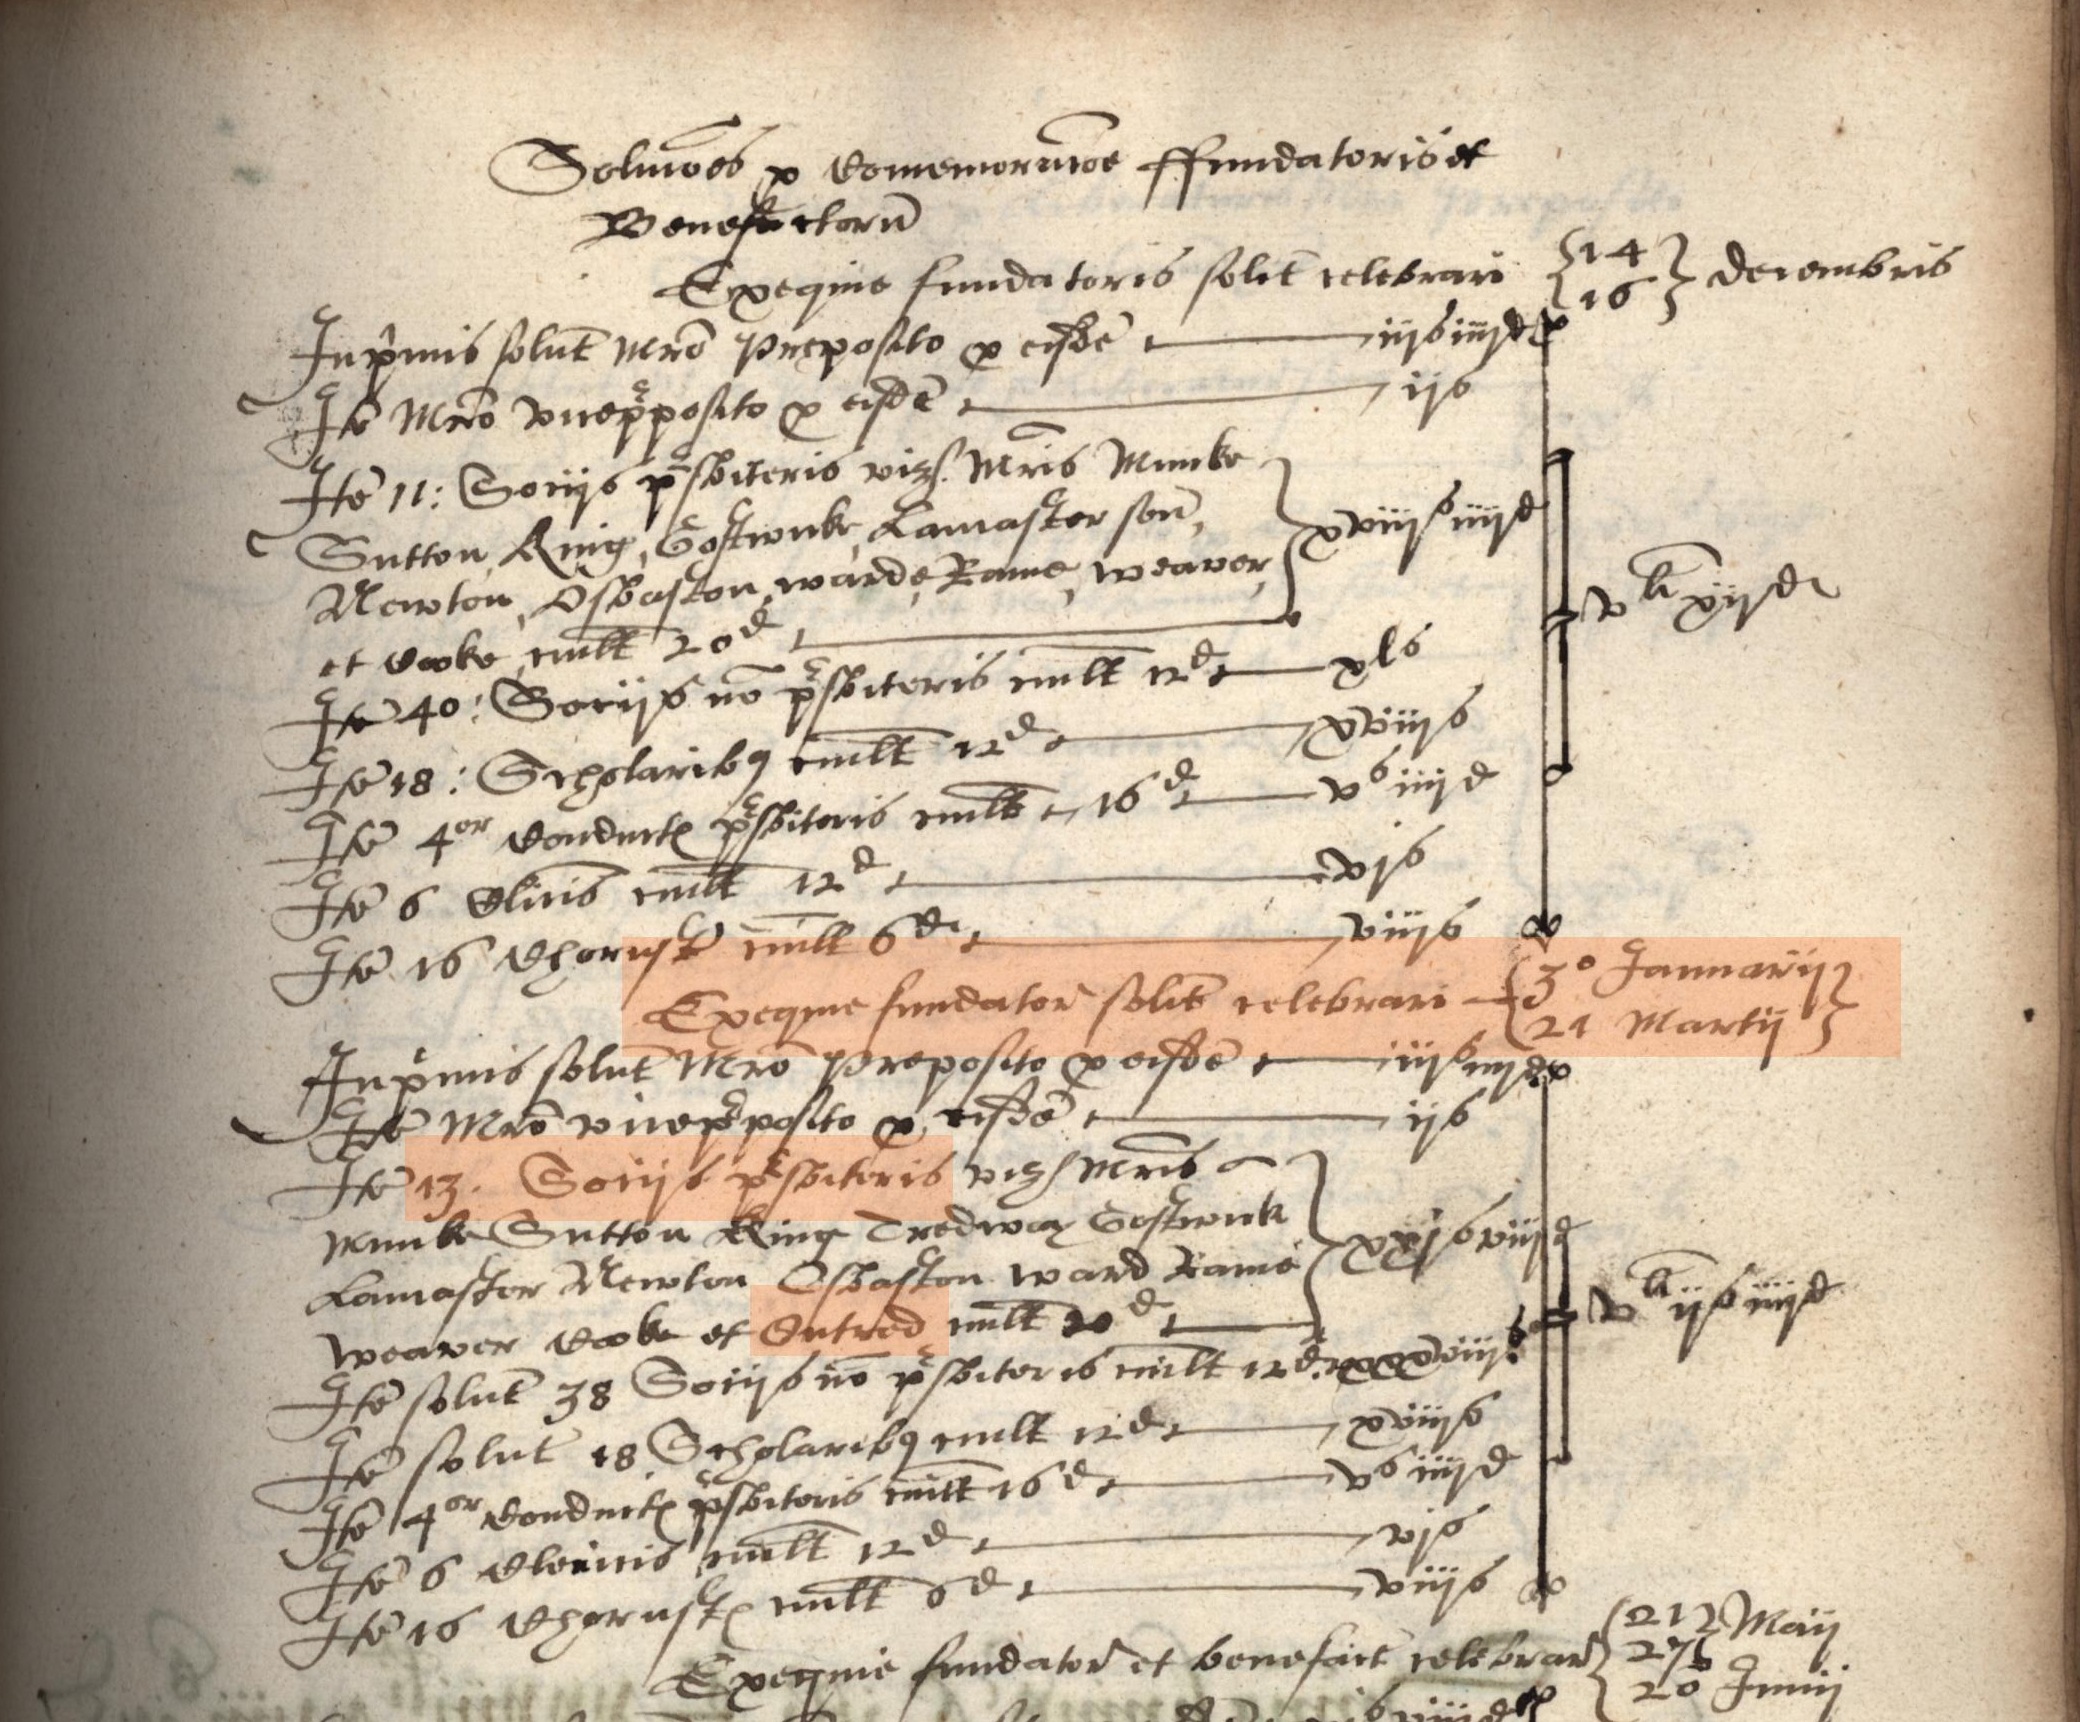 Soluc̃oẽs p Com̃emorac̃oe ffundatoris et
Benefactorũ
Exequie fundatoris solit̃ celebrari {14 16} decembris
Inp̃mis solut̃ Mrõ Preposito p eisdẽ iijs iiijd
Itẽ Mrõ vicep̃posito p eisdẽ ijs
Itẽ 11: Socijs p̃sbiteris vizs. Mris̃ Munke
Sutton, King, Gostwicke, Lamaster sen̄,
Newton, Osbaston, warde, Rame, weaver,
et Cooke cuil̃t 20d xviijs iiijd
vli xijd
Itẽ 40: Socijs nõ p̃sbiteris cuil̃t 12d xls
Itẽ 18: Scholaribq cuil̃t 12d xviijs
Itẽ 4or Conduct p̃sbiteris cuil̃t 16d vs iiijd
Itẽ 6 Clic̃is cuil̃t 12d vjs
Itẽ 16 Chorust̃ cuil̃t 6d viijs
Exequie fundator̃ solit̃ celebrari {3o Januarij 21 Martij}
Inp̃mis solut̃ Mrõ Preposito p eisdẽ iijs iiijd
Itẽ Mrõ vicep̃posito p eisdẽ ijs
Itẽ 13. Socijs p̃sbiteris vizs Mris̃
Munke Sutton King Tredway Gostwick
Lamaster Newton Osbaston ward Rame
weaver Cooke et Outred cuil̃t 20d xxjs viijd
vli ijs iiijd
Itẽ solut̃ 38 Socijs nõ p̃sbiteris cuil̃t 12d xxxviijs
Itẽ solut̃ 18 Scholaribq cuil̃t 12d xviijs
Itẽ 4or Conduct p̃sbiteris cuil̃t 16d vs iiijd
Itẽ 6 Clericis cuil̃t 12d vjs
Itẽ 16 Chorust cuil̃t 6d viijs
Exequie fundator̃ et benefact̃ celebrar̃ {21 27 Maij 20 Junij